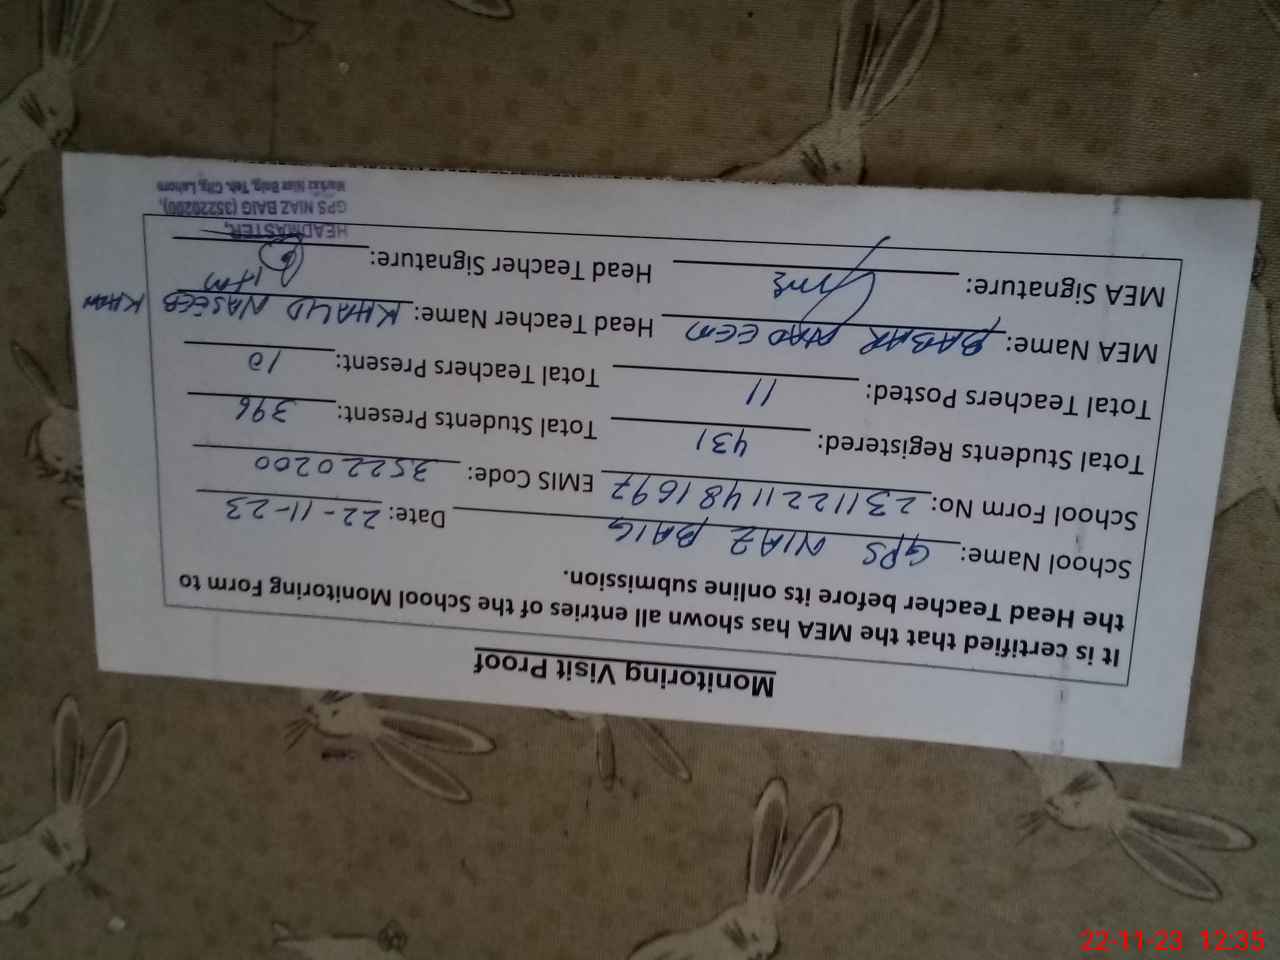 Monitoring Visit Proof
It is certified that the MEA has shown all entries of the School Monitoring Form to
the Head Teacher before its online submission.
School Name: GPS NIAZ BAIG Date: 22-11-23
School Form No: 231122114816 97 EMIS Code: 35220200
Total Students Registered: 431 Total Students Present: 396
Total Teachers Posted: 11 Total Teachers Present: 10
MEA Name: BABAR NADEEM Head Teacher Name: KHALID NASEEB KHAN
MEA Signature: Head Teacher Signature: HM
HEADMASTER,
GPS NIAZ BAIG (35220200),
Markaz Niaz Baig, Teh. City, Lahore
22-11-23 12:35